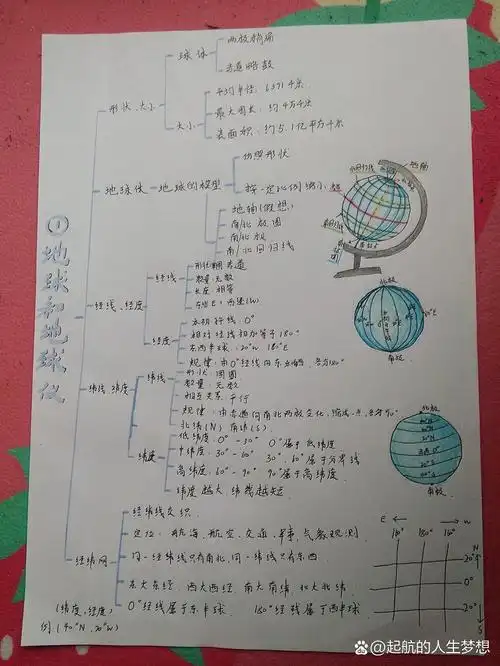 ① 地球和地球仪
形状、大小
球体
两极稍扁
赤道略鼓
大小
平均半径:6371千米
最大周长:约4万千米
表面积:约5.1亿平方千米
地球仪
地球的模型
仿照形状
按一定比例缩小
地轴(假想)
南/北极圈
南/北极
南/北回归线
经线、经度
经线
形状:
数量:无数
长度:相等
经度
本初子午线:0°
相对经线相加等于180°
东西半球:20°W 180°E
规律:由0°经线向东
纬线、纬度
纬线
形状:圆圈
数量:无数
相互关系:平行
规律:由赤道向南北两极
北纬(N) 南纬(S)
纬度
低纬度:0°-30° 0°属于低纬度
中纬度:30°-60° 30°、60°属于分界线
高纬度:60°-90° 90°属于高纬度
纬度越大,纬线越短
经纬网
经纬线交织
定位:航海、航空、交通、军事、气象观测
同一经线只有南北,同一纬线只有东西
东大东经,西大西经,南大南纬,北大北纬
0°经线属于东半球 180°经线属于西半球
(纬度,经度)
例:(40°N,20°W)
地轴
北极
南极
北极
赤道 0°
南极
E
W
180°
160°
20°
0°
20°
S
@起航的人生梦想